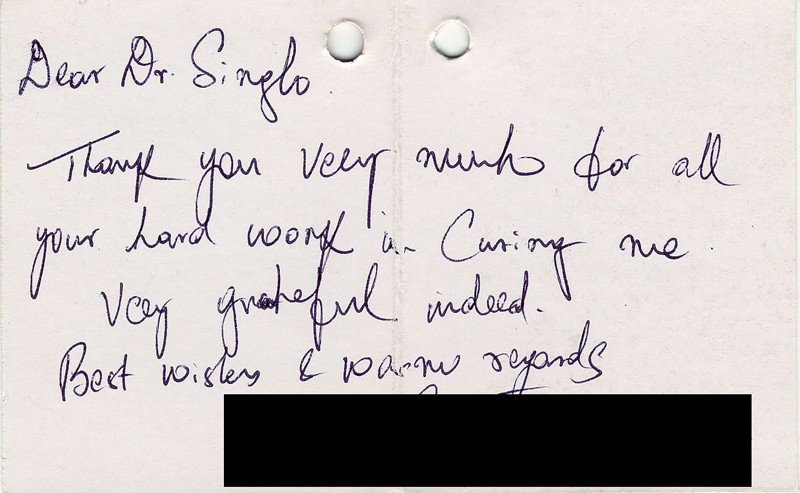 Dear Dr. Singh
Thank you very much for all
your hard work in Curing me.
Very grateful indeed.
Best wishes & warm regards